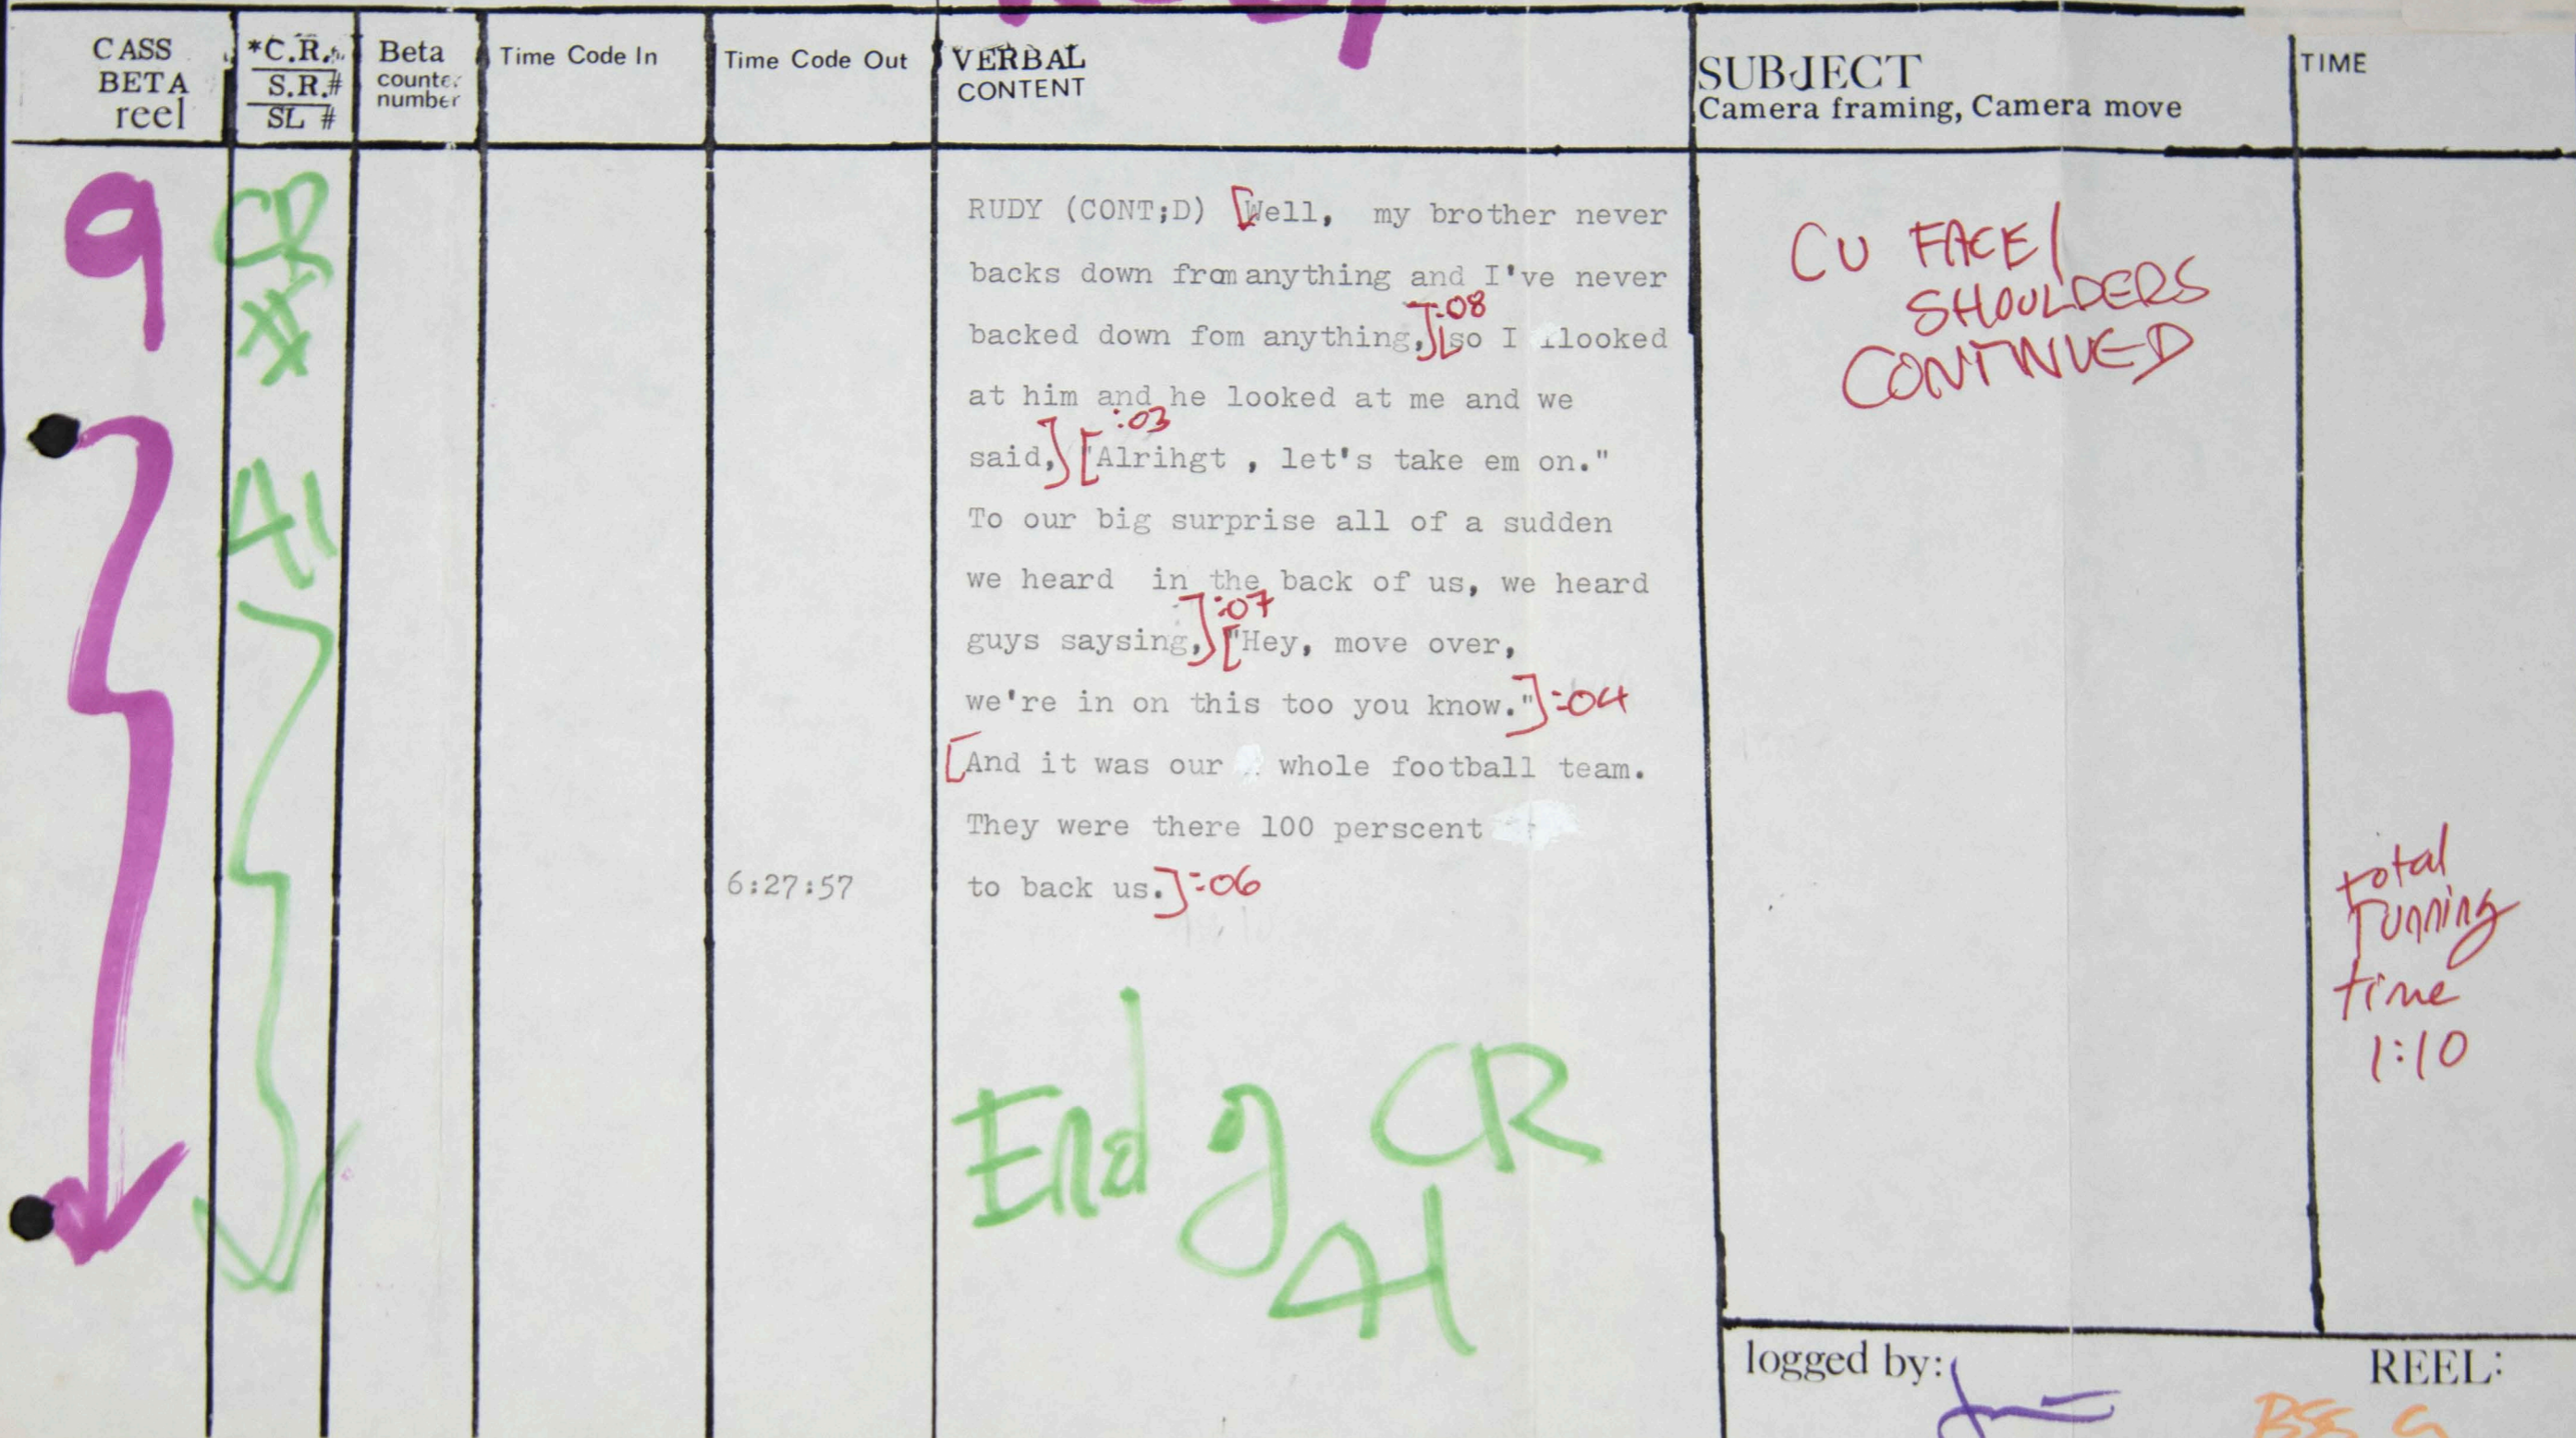 CASS
BETA
reel
*C.R.
S.R.#
SL #
Beta
counter
number
Time Code In
Time Code Out
VERBAL
CONTENT
SUBJECT
Camera framing, Camera move
TIME
9
CR
#
41
RUDY (CONT;D) [Well, my brother never
backs down from anything and I've never
backed down fom anything,] :08 [so I looked
at him and he looked at me and we
said,] :03 ["Alrihgt , let's take em on."
To our big surprise all of a sudden
we heard in the back of us, we heard
guys saysing,] :07 ["Hey, move over,
we're in on this too you know."] :04
[And it was our whole football team.
They were there 100 perscent
6:27:57 to back us.] :06
CU FACE/
SHOULDERS
CONTINUED
total
running
time
1:10
End of CR
41
logged by:
REEL: